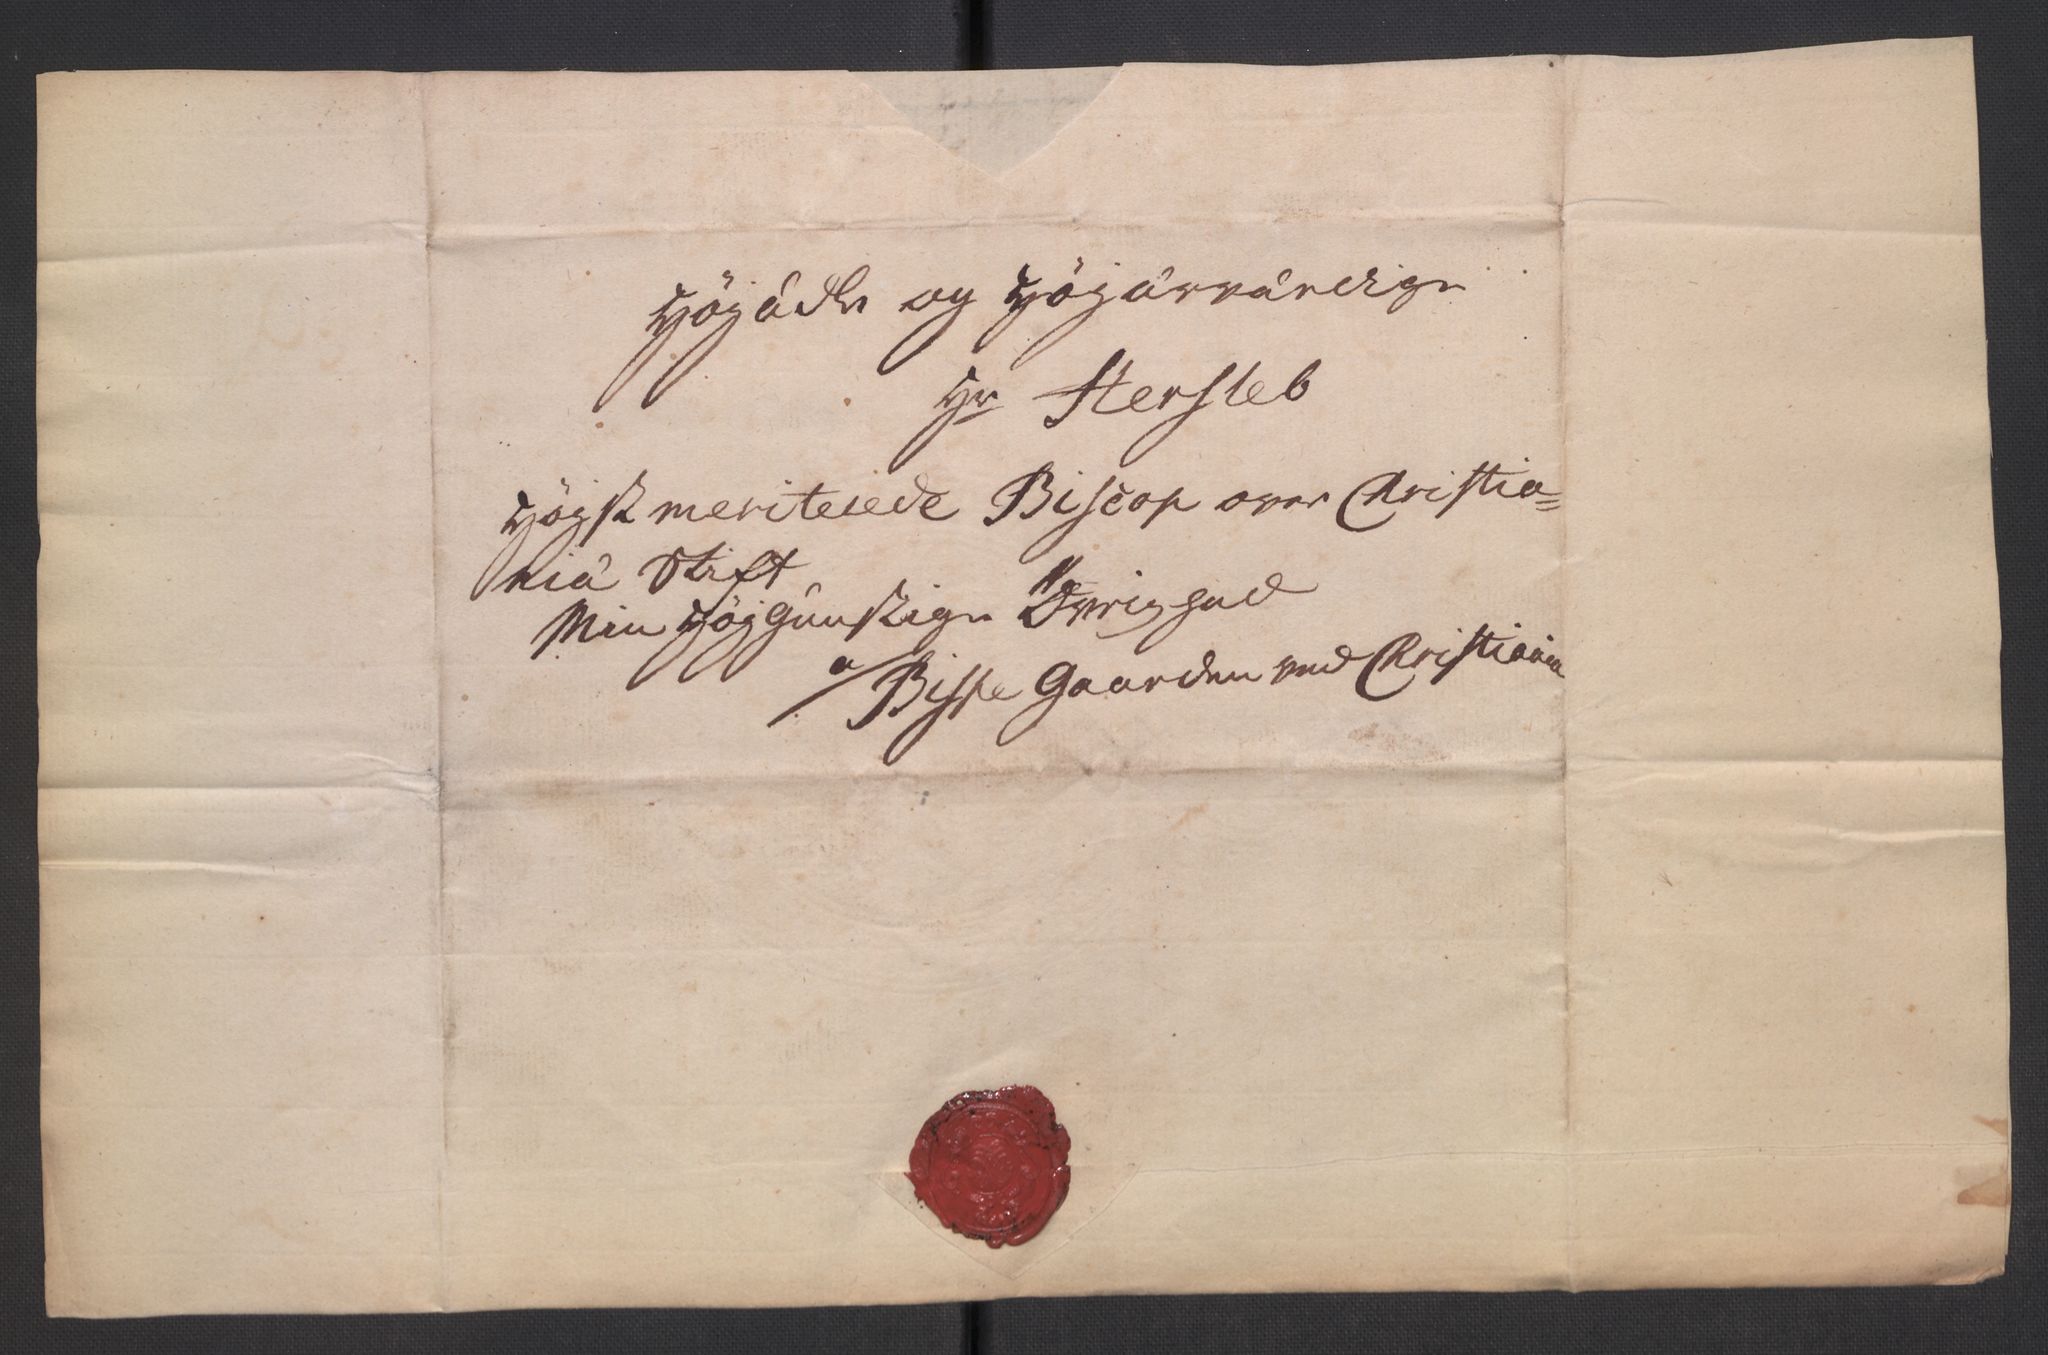 Högädle og Högärværdige
Hr Hersleb
Högst meriterede Biscop over Christia=
nia Stift
Min Höjgunstige Övrighed
a/ Bispe Gaarden ved Christiania